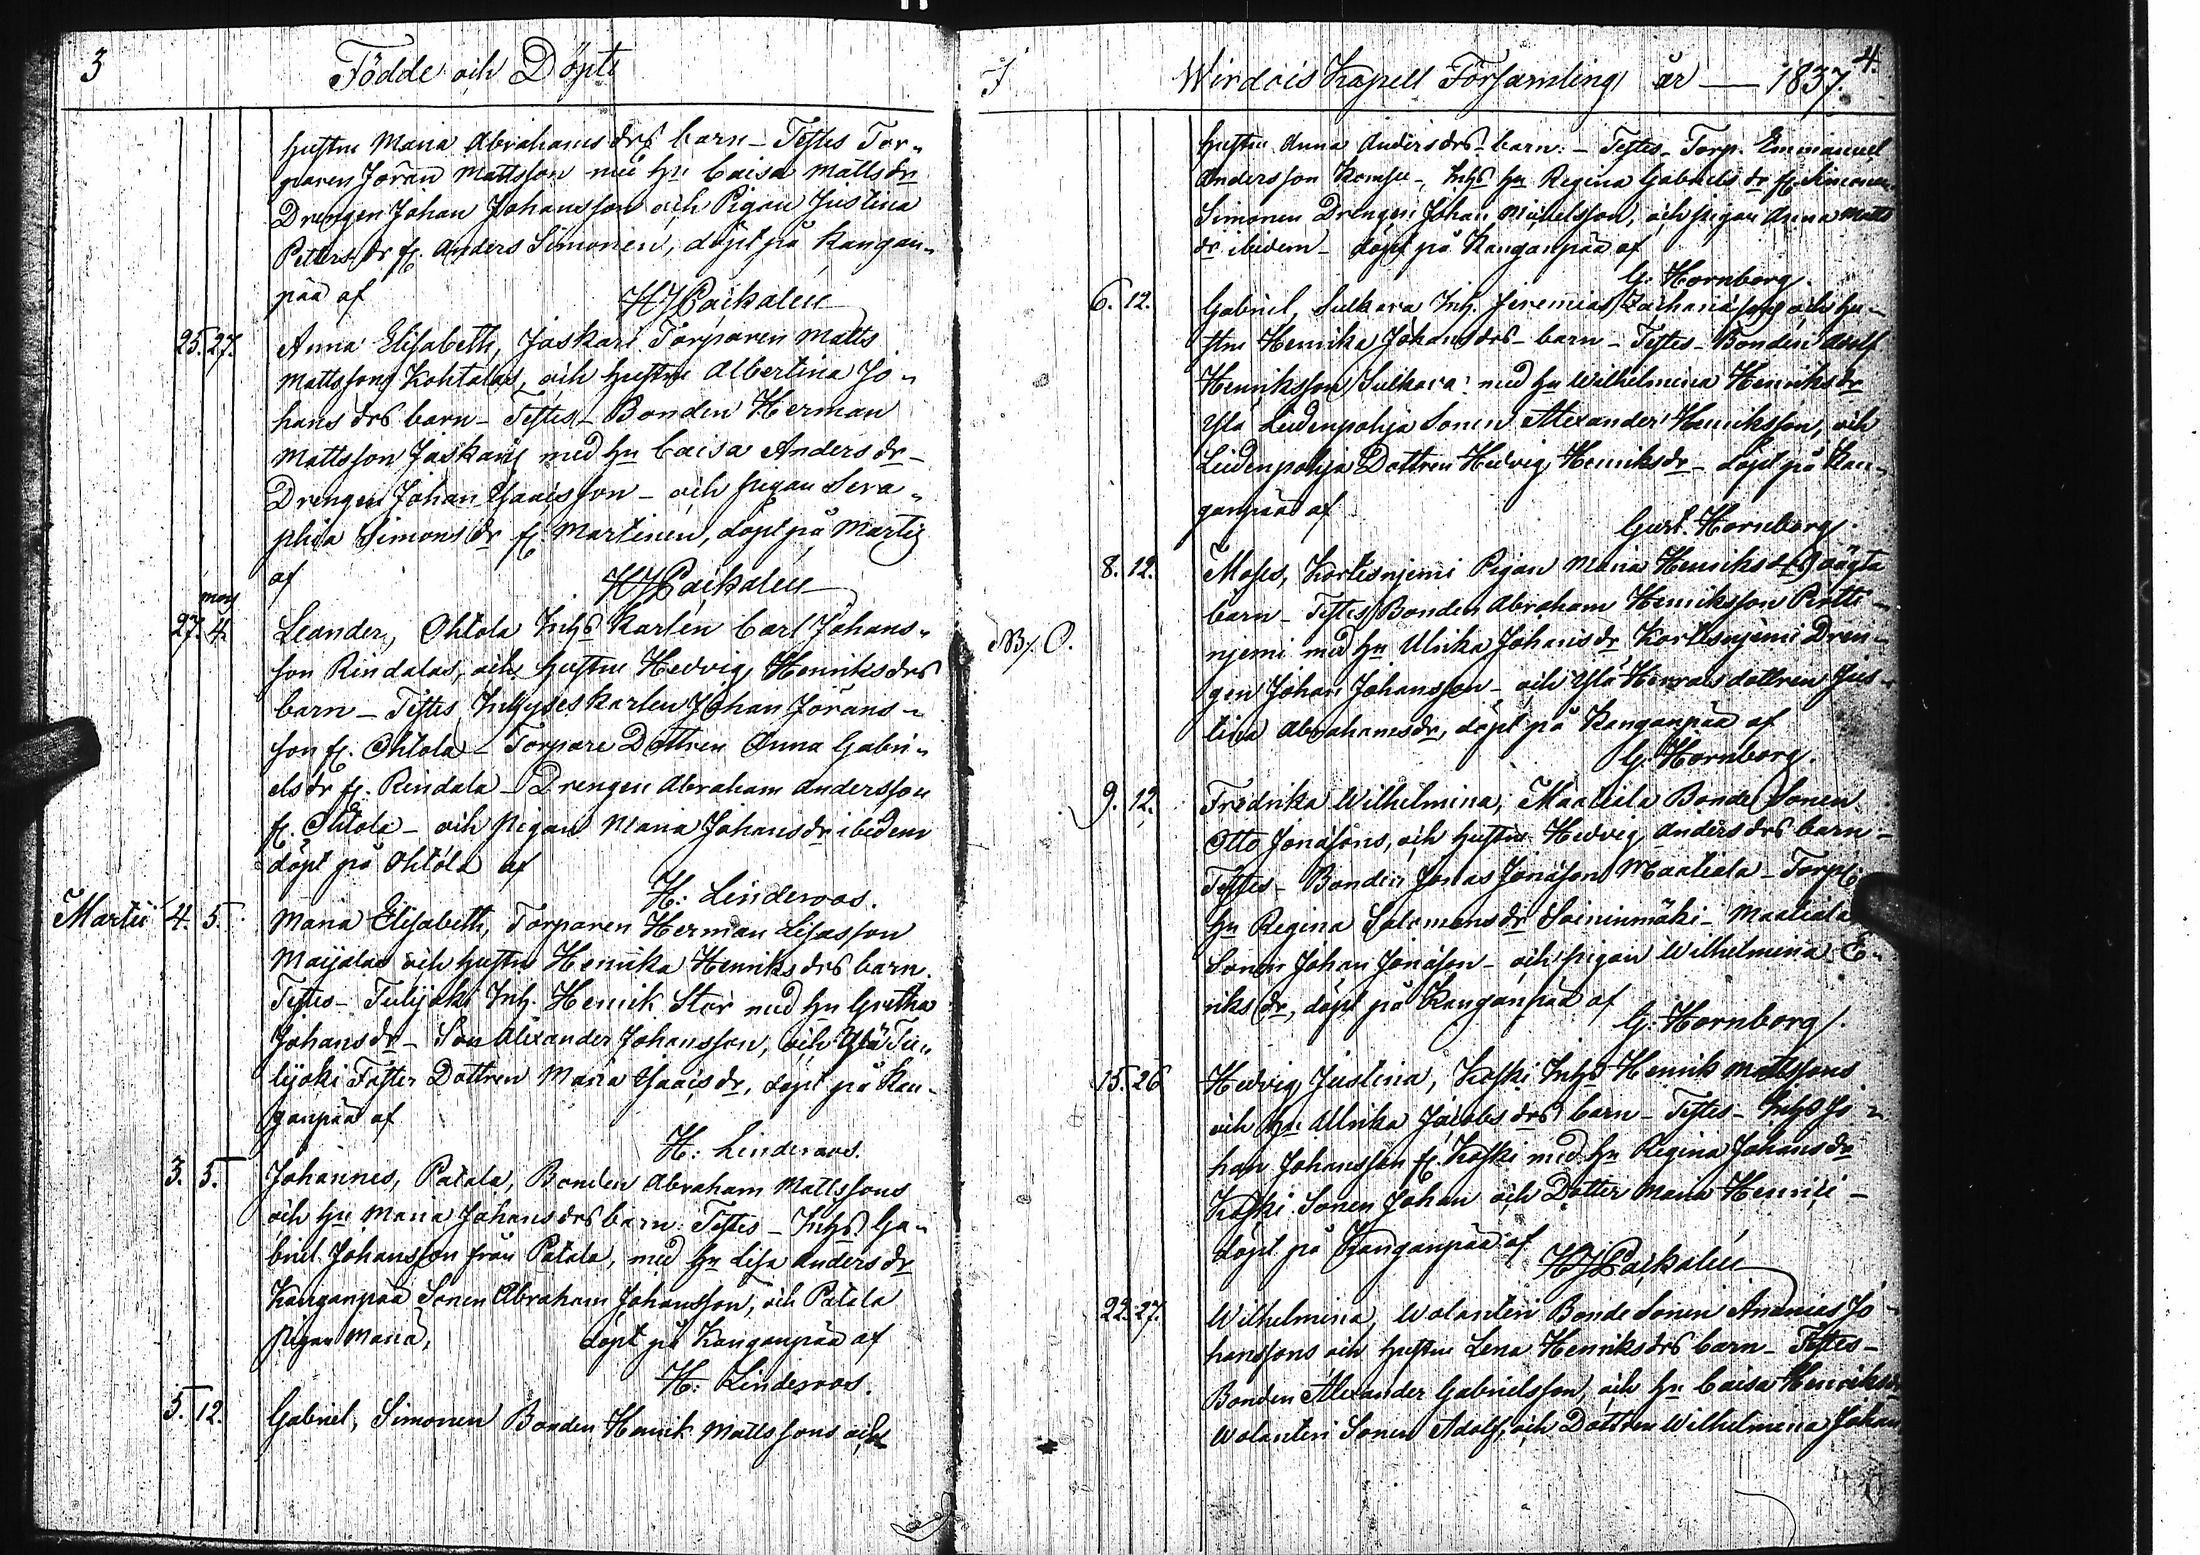 3 Födde och Döpte
hustru Maria Abrahams drs barn – Testes Tor-
paren Jöran Mattsson med hu Caisa Matts dr
Drengen Johan Johansson och Pigan Justina
Petters dr fr. Anders Simonen, döpt på Kangan-
pää af HJ Paikalen
25. 27. Anna Elisabeth, Jaskari Torparen Matts
Mattssons Kohtalas, och hustru Albertina Jo-
hans drs barn – Testes – Bonden Herman
Mattsson Jaskari med hu Caisa Anders dr –
Drengen Johan Isaacsson – och pigan Sera-
phia Simons dr fr. Martinen, döpt på Martis
af HJ Paikalen
mars
27. 4. Leander, Ohtola Inhs karlen Carl Johans-
son Rindalas, och hustru Hedvig Henriks drs
barn – Testes Inhyses karlen Johan Jörans-
son fr. Ohtola – Torpare Dottren Anna Gabri-
els dr fr. Rindala – Drengen Abraham Andersson
fr. Ohtola – och pigan Maria Johans dr ibidem
döpt på Ohtola af
H: Linderoos.
Martii 4. 5. Maria Elisabeth, Torparen Herman Esaasson
Maijalas och hustru Henrika Henriks drs barn.
Testes – Tulijoki Inh. Henrik Stor med hu Gretha
Johans dr – Son Alexander Johansson, och Ylä Tu-
lijoki Faster Dottren Maria Isaacs dr, döpt på Kan-
ganpää af
H: Linderoos.
3. 5. Johannes, Patala, Bonden Abraham Mattssons
och hu Maria Johans drs barn. Testes – Inhs Ga-
briel Johansson från Patala, med hu Lisa Anders dr
Kanganpää Sonen Abraham Johansson, och Patala
pigan Maria, döpt på Kanganpää af
H: Linderoos.
5. 12. Gabriel, Simonen Bonden Henrik Mattssons och
I Wirdois Kapell Församling år — 1837. 4.
hustru Anna Anders drs barn. – Testes – Torp. Emmanuel
Andersson Kompu –, Inhs hu Regina Gabriels dr fr. Simonen
Simonen Drengen Johan Michelsson, och pigan Anna Matts
dr ibidem – döpt på Kanganpää af
G: Hornborg.
6. 12. Gabriel, Sulkava Inh. Jeremias Zachariæsons och hu-
stru Henrika Johans drs – barn – Testes – Bonden Adolf
Henriksson Sulkava med hu Wilhelmina Henriks dr
Ylä Leidenpohja Sonen Alexander Henriksson, och
Leidenpohja Dottren Hedvig Henriks dr – döpt på Kan-
ganpää af
Gust. Hornborg.
8. 12. Moses, Kortesnjemi Pigan Maria Henriks drs oägta
barn – Testes Bonden Abraham Henriksson Pentti-
NB. O. njemi med hu Ulrika Johans dr Kortesnjemi Dren-
gen Johan Johansson – och Ylä dottren Jus-
tina Abrahams dr, döpt på Kanganpää af
G: Hornborg.
9. 12. Fredrika Wilhelmina, Maaliala Bonde Sonen
Otto Jonæsons, och hustru Hedvig Anders drs barn –
Testes – Bonden Jonas Jonæson Maaliala – Torp.
hu Regina Salomons dr Soininmäki – Maaliala
Sonen Johan Jonæson – och pigan Wilhelmina E-
riks dr, döpt på Kanganpää af
G: Hornborg.
15. 26 Hedvig Justina, Koski Inhs Henrik Mattssons
och hu Ulrika Jacobs drs barn – Testes – Inhs Jo-
han Johansson fr. Koski med hu Regina Johans dr
Koski Sonen Johan och Dotter Maria Henrici –
döpt på Kanganpää af
HJ Paikalen
22. 27. Wilhelmina, Wolanteri Bonde Sonen Ananias Jo-
hanssons och hustru Lena Henriks drs barn – Testes –
Bonden Alexander Gabrielsson, och hu Caisa Henriks dr
Wolanteri Sonen Adolf, och Dottren Wilhelmina Johan